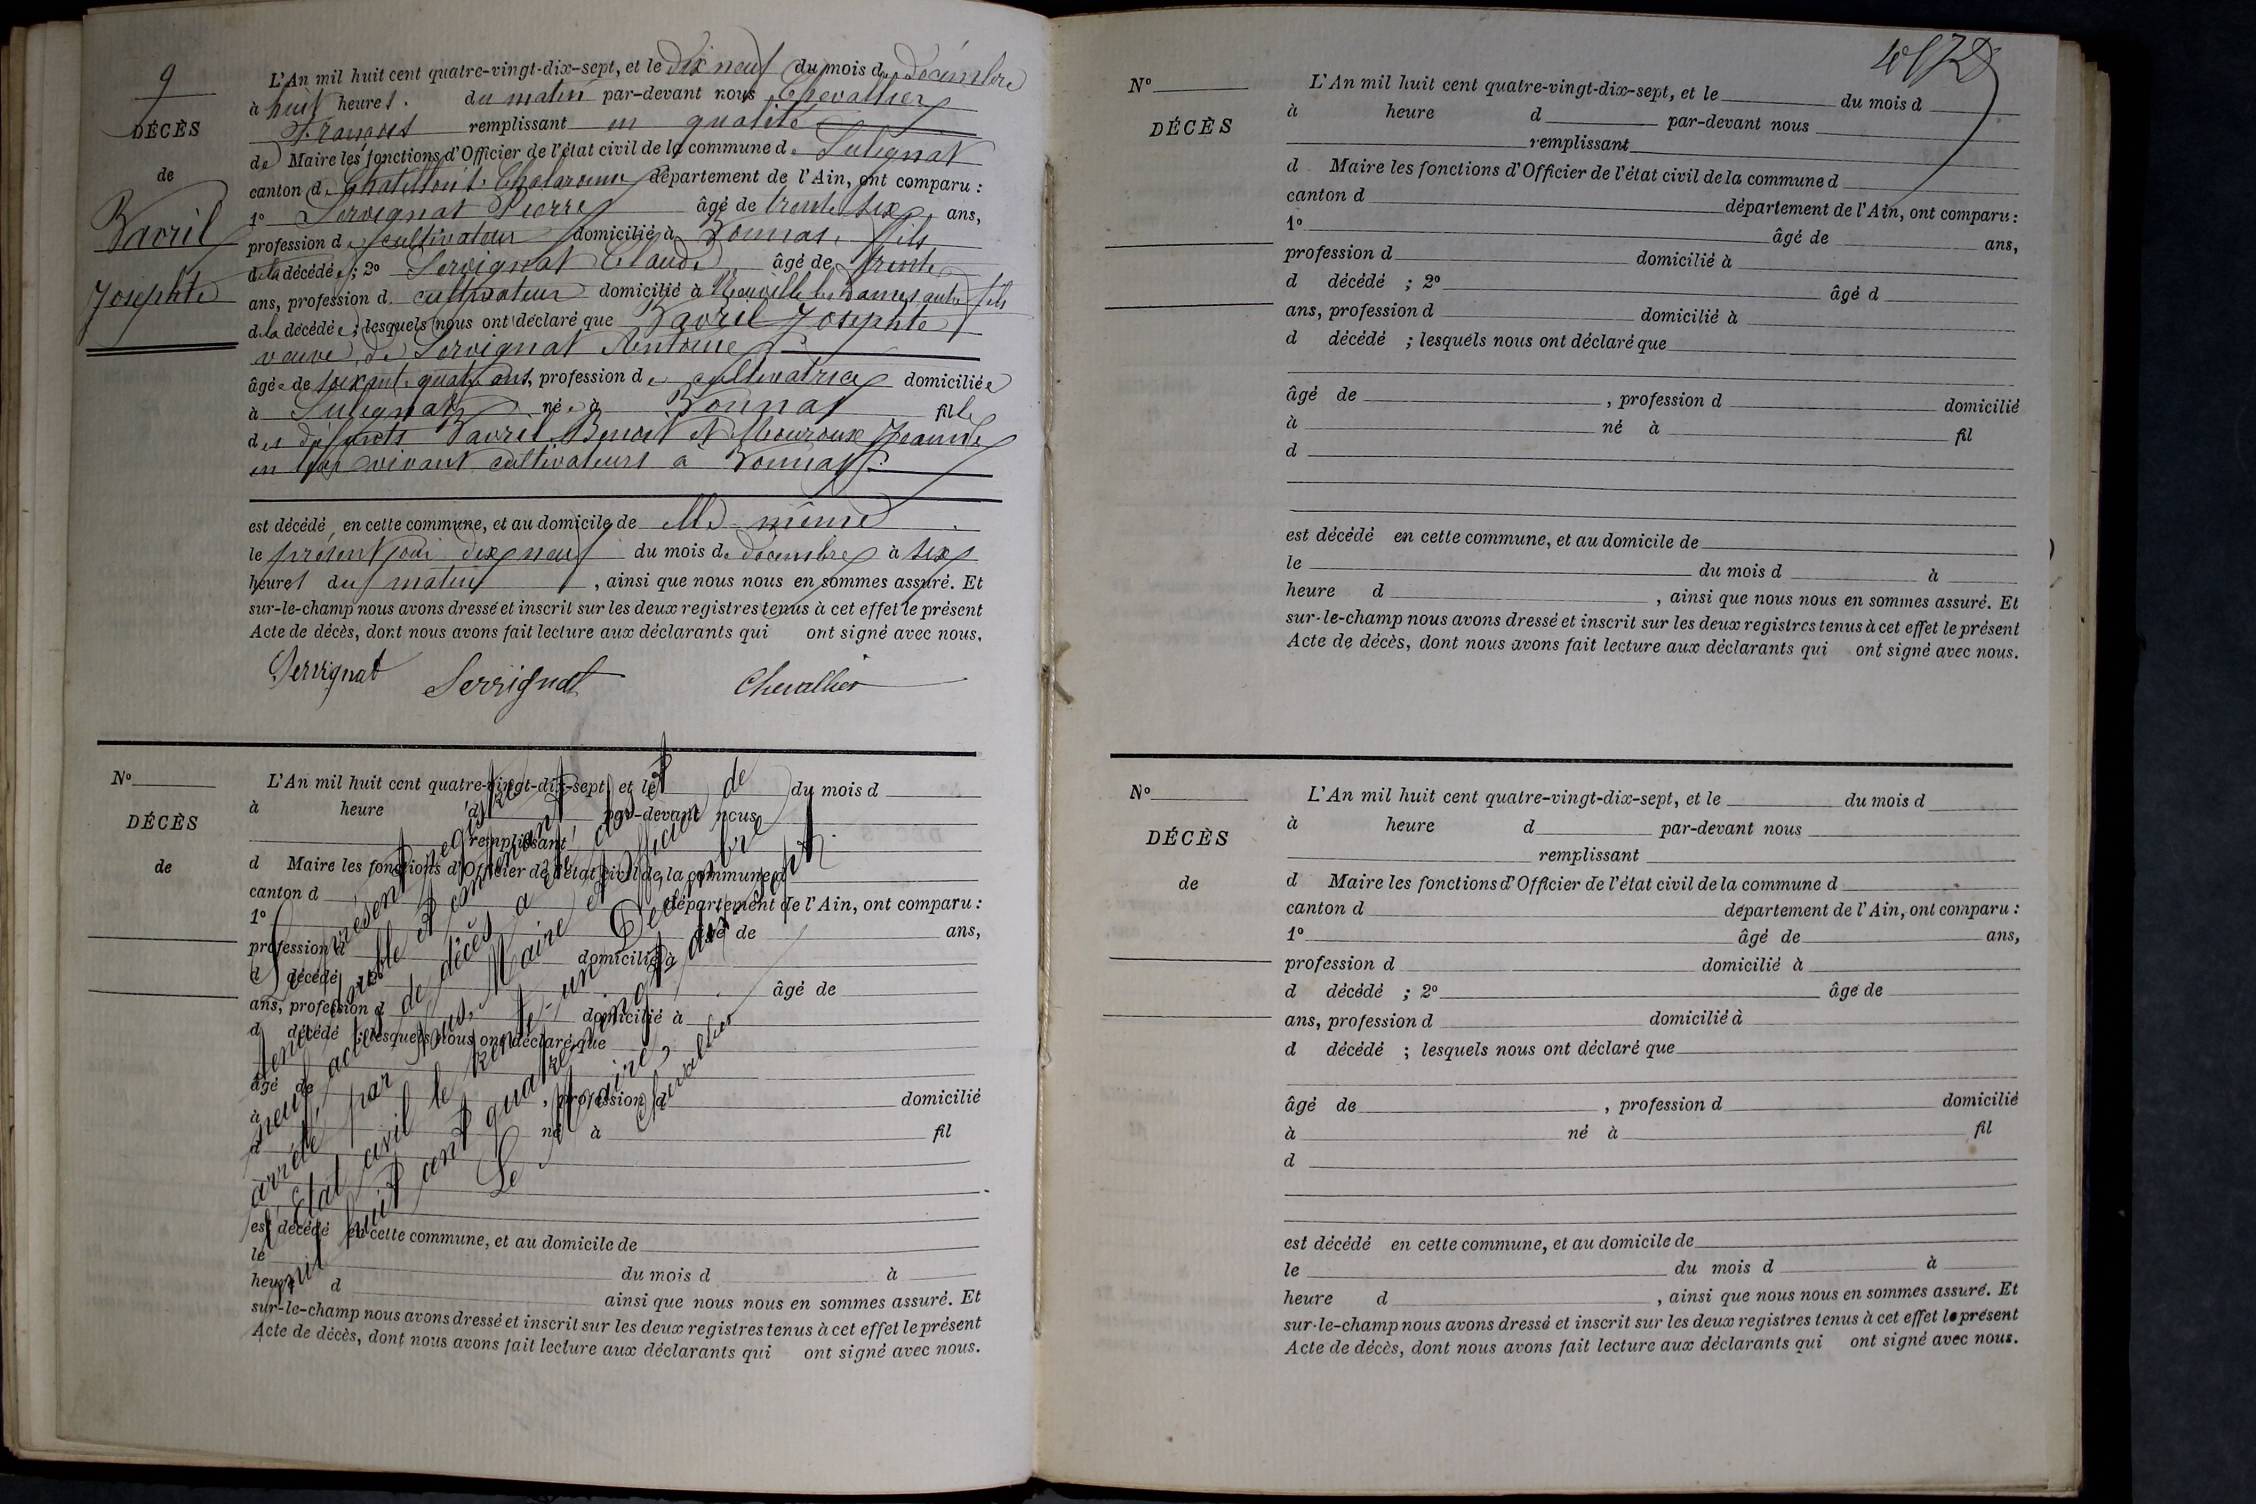 9
DÉCÈS
de
Bavril
Josephte
L'An mil huit cent quatre-vingt-dix-sept, et le dix neuf du mois de décembre
à huit heures. du matin par-devant nous Chevallier
François remplissant en qualité
de Maire les fonctions d'Officier de l'état civil de la commune de Sulignat
canton de Chatillon s. Chalaronne département de l'Ain, ont comparu :
1° Servignat Pierre âgé de trente six ans,
profession de cultivateur domicilié à Vonnas, fils
de la décédée ; 2° Servignat Claude âgé de trente
ans, profession d. cultivateur domicilié à Neuville les Dames autre fils
de la décédée ; lesquels nous ont déclaré que Bavril Josephte
veuve de Servignat Antoine
âgée de soixante quatre ans, profession de cultivatrice domiciliée
à Sulignat née à Vonnas fille
des défunts Bavril Benoit et Mouroux Jeanne
en leur vivant cultivateurs à Vonnas
est décédé en cette commune, et au domicile de elle même
le présent jour dix neuf du mois de décembre à six
heures du matin , ainsi que nous nous en sommes assuré. Et
sur-le-champ nous avons dressé et inscrit sur les deux registres tenus à cet effet le présent
Acte de décès, dont nous avons fait lecture aux déclarants qui ont signé avec nous.
Servignat Servignat Chevallier
N°
DÉCÈS
de
L'An mil huit cent quatre-vingt-dix-sept, et le du mois d
à heure d par-devant nous
remplissant
d Maire les fonctions d'Officier de l'état civil de la commune d
canton d département de l'Ain, ont comparu :
1° âgé de ans,
profession d domicilié à
d décédé ; 2° âgé de
ans, profession d domicilié à
d décédé ; lesquels nous ont déclaré que
âgé de , profession d domicilié
à né à fil
d
est décédé en cette commune, et au domicile de
le du mois d à
heure d ainsi que nous nous en sommes assuré. Et
sur-le-champ nous avons dressé et inscrit sur les deux registres tenus à cet effet le présent
Acte de décès, dont nous avons fait lecture aux déclarants qui ont signé avec nous.
Le présent registre
double et contenant
neuf actes de décès a été clos et
arrêté par Nous, Maire et Officier de
l'État civil le trente-un Décembre
mil huit cent quatre-vingt dix sept.
Le Maire,
Chevallier
N°
DÉCÈS
L'An mil huit cent quatre-vingt-dix-sept, et le du mois d
à heure d par-devant nous
remplissant
d Maire les fonctions d'Officier de l'état civil de la commune d
canton d département de l'Ain, ont comparu :
1° âgé de ans,
profession d domicilié à
d décédé ; 2° âgé d
ans, profession d domicilié à
d décédé ; lesquels nous ont déclaré que
âgé de , profession d domicilié
à né à fil
d
est décédé en cette commune, et au domicile de
le du mois d à
heure d , ainsi que nous nous en sommes assuré. Et
sur-le-champ nous avons dressé et inscrit sur les deux registres tenus à cet effet le présent
Acte de décès, dont nous avons fait lecture aux déclarants qui ont signé avec nous.
N°
DÉCÈS
de
L'An mil huit cent quatre-vingt-dix-sept, et le du mois d
à heure d par-devant nous
remplissant
d Maire les fonctions d'Officier de l'état civil de la commune d
canton d département de l'Ain, ont comparu :
1° âgé de ans,
profession d domicilié à
d décédé ; 2° âgé de
ans, profession d domicilié à
d décédé ; lesquels nous ont déclaré que
âgé de , profession d domicilié
à né à fil
d
est décédé en cette commune, et au domicile de
le du mois d à
heure d , ainsi que nous nous en sommes assuré. Et
sur-le-champ nous avons dressé et inscrit sur les deux registres tenus à cet effet le présent
Acte de décès, dont nous avons fait lecture aux déclarants qui ont signé avec nous.